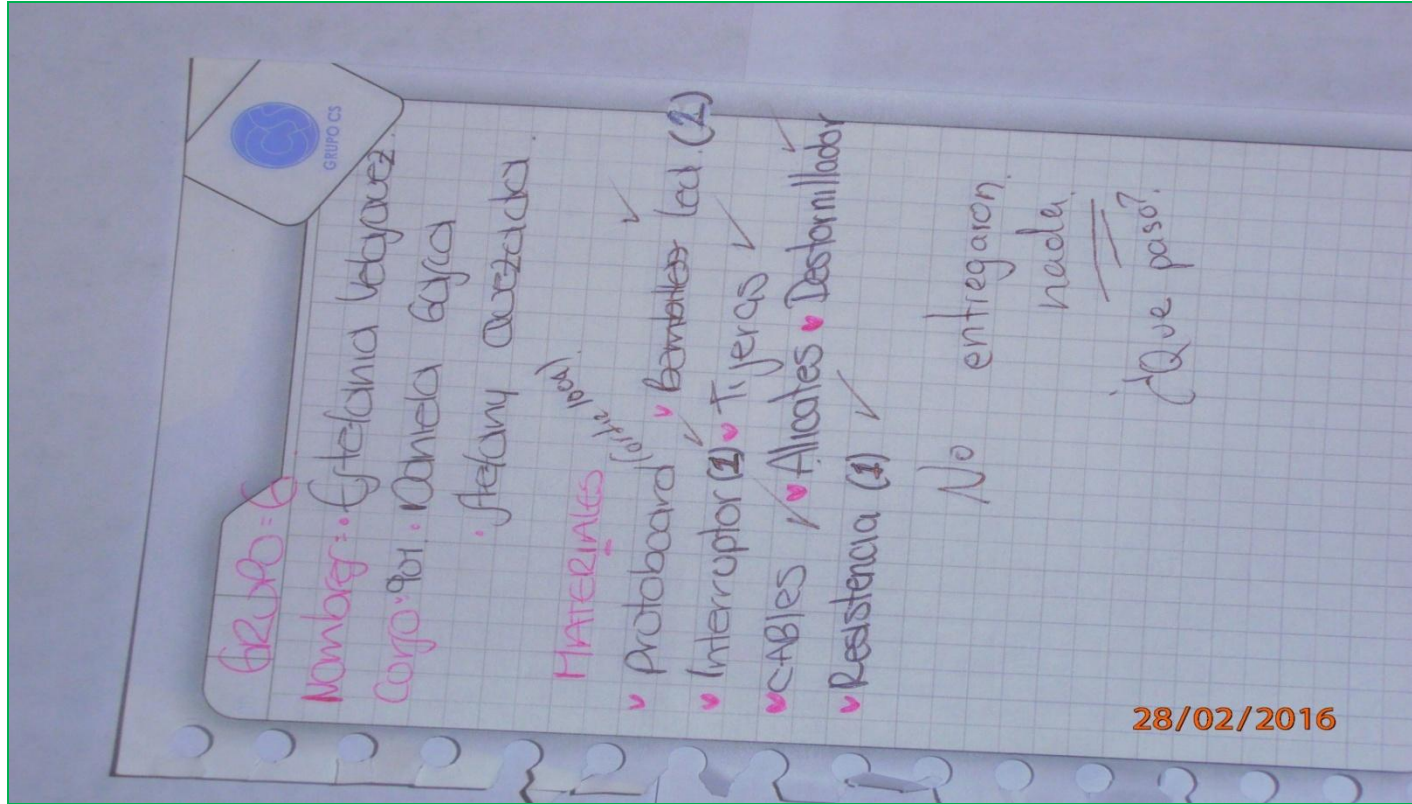 GRUPO CS
GRUPO = 6
Nombres = • Estefania Velazquez.
Curso • 901. • Daniela
• stefany quezada.
MATERIALES
Protoboard led (2)
Interruptor (1) Tijeras
CABles Alicates Destornillador
Resistencia (1)
No entregaron
nada
¿Que pasó?
28/02/2016